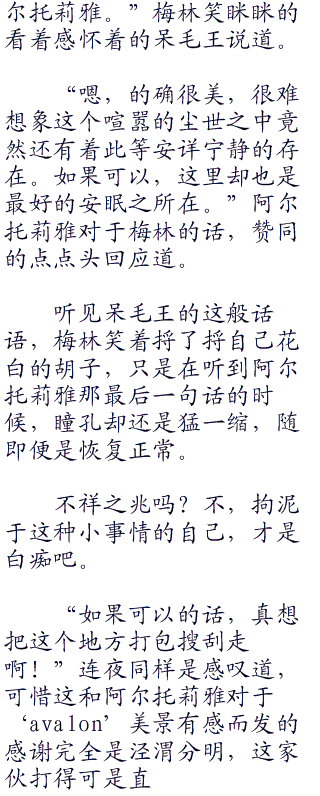 尔托莉雅。”梅林笑眯眯的
看着感怀着的呆毛王说道。
“嗯，的确很美，很难
想象这个喧嚣的尘世之中竟
然还有着此等安详宁静的存
在。如果可以，这里却也是
最好的安眠之所在。”阿尔
托莉雅对于梅林的话，赞同
的点点头回应道。
听见呆毛王的这般话
语，梅林笑着捋了捋自己花
白的胡子，只是在听到阿尔
托莉雅那最后一句话的时
候，瞳孔却还是猛一缩，随
即便是恢复正常。
不祥之兆吗？不，拘泥
于这种小事情的自己，才是
白痴吧。
“如果可以的话，真想
把这个地方打包搜刮走
啊！”连夜同样是感叹道，
可惜这和阿尔托莉雅对于
‘avalon’美景有感而发的
感谢完全是泾渭分明，这家
伙打得可是直